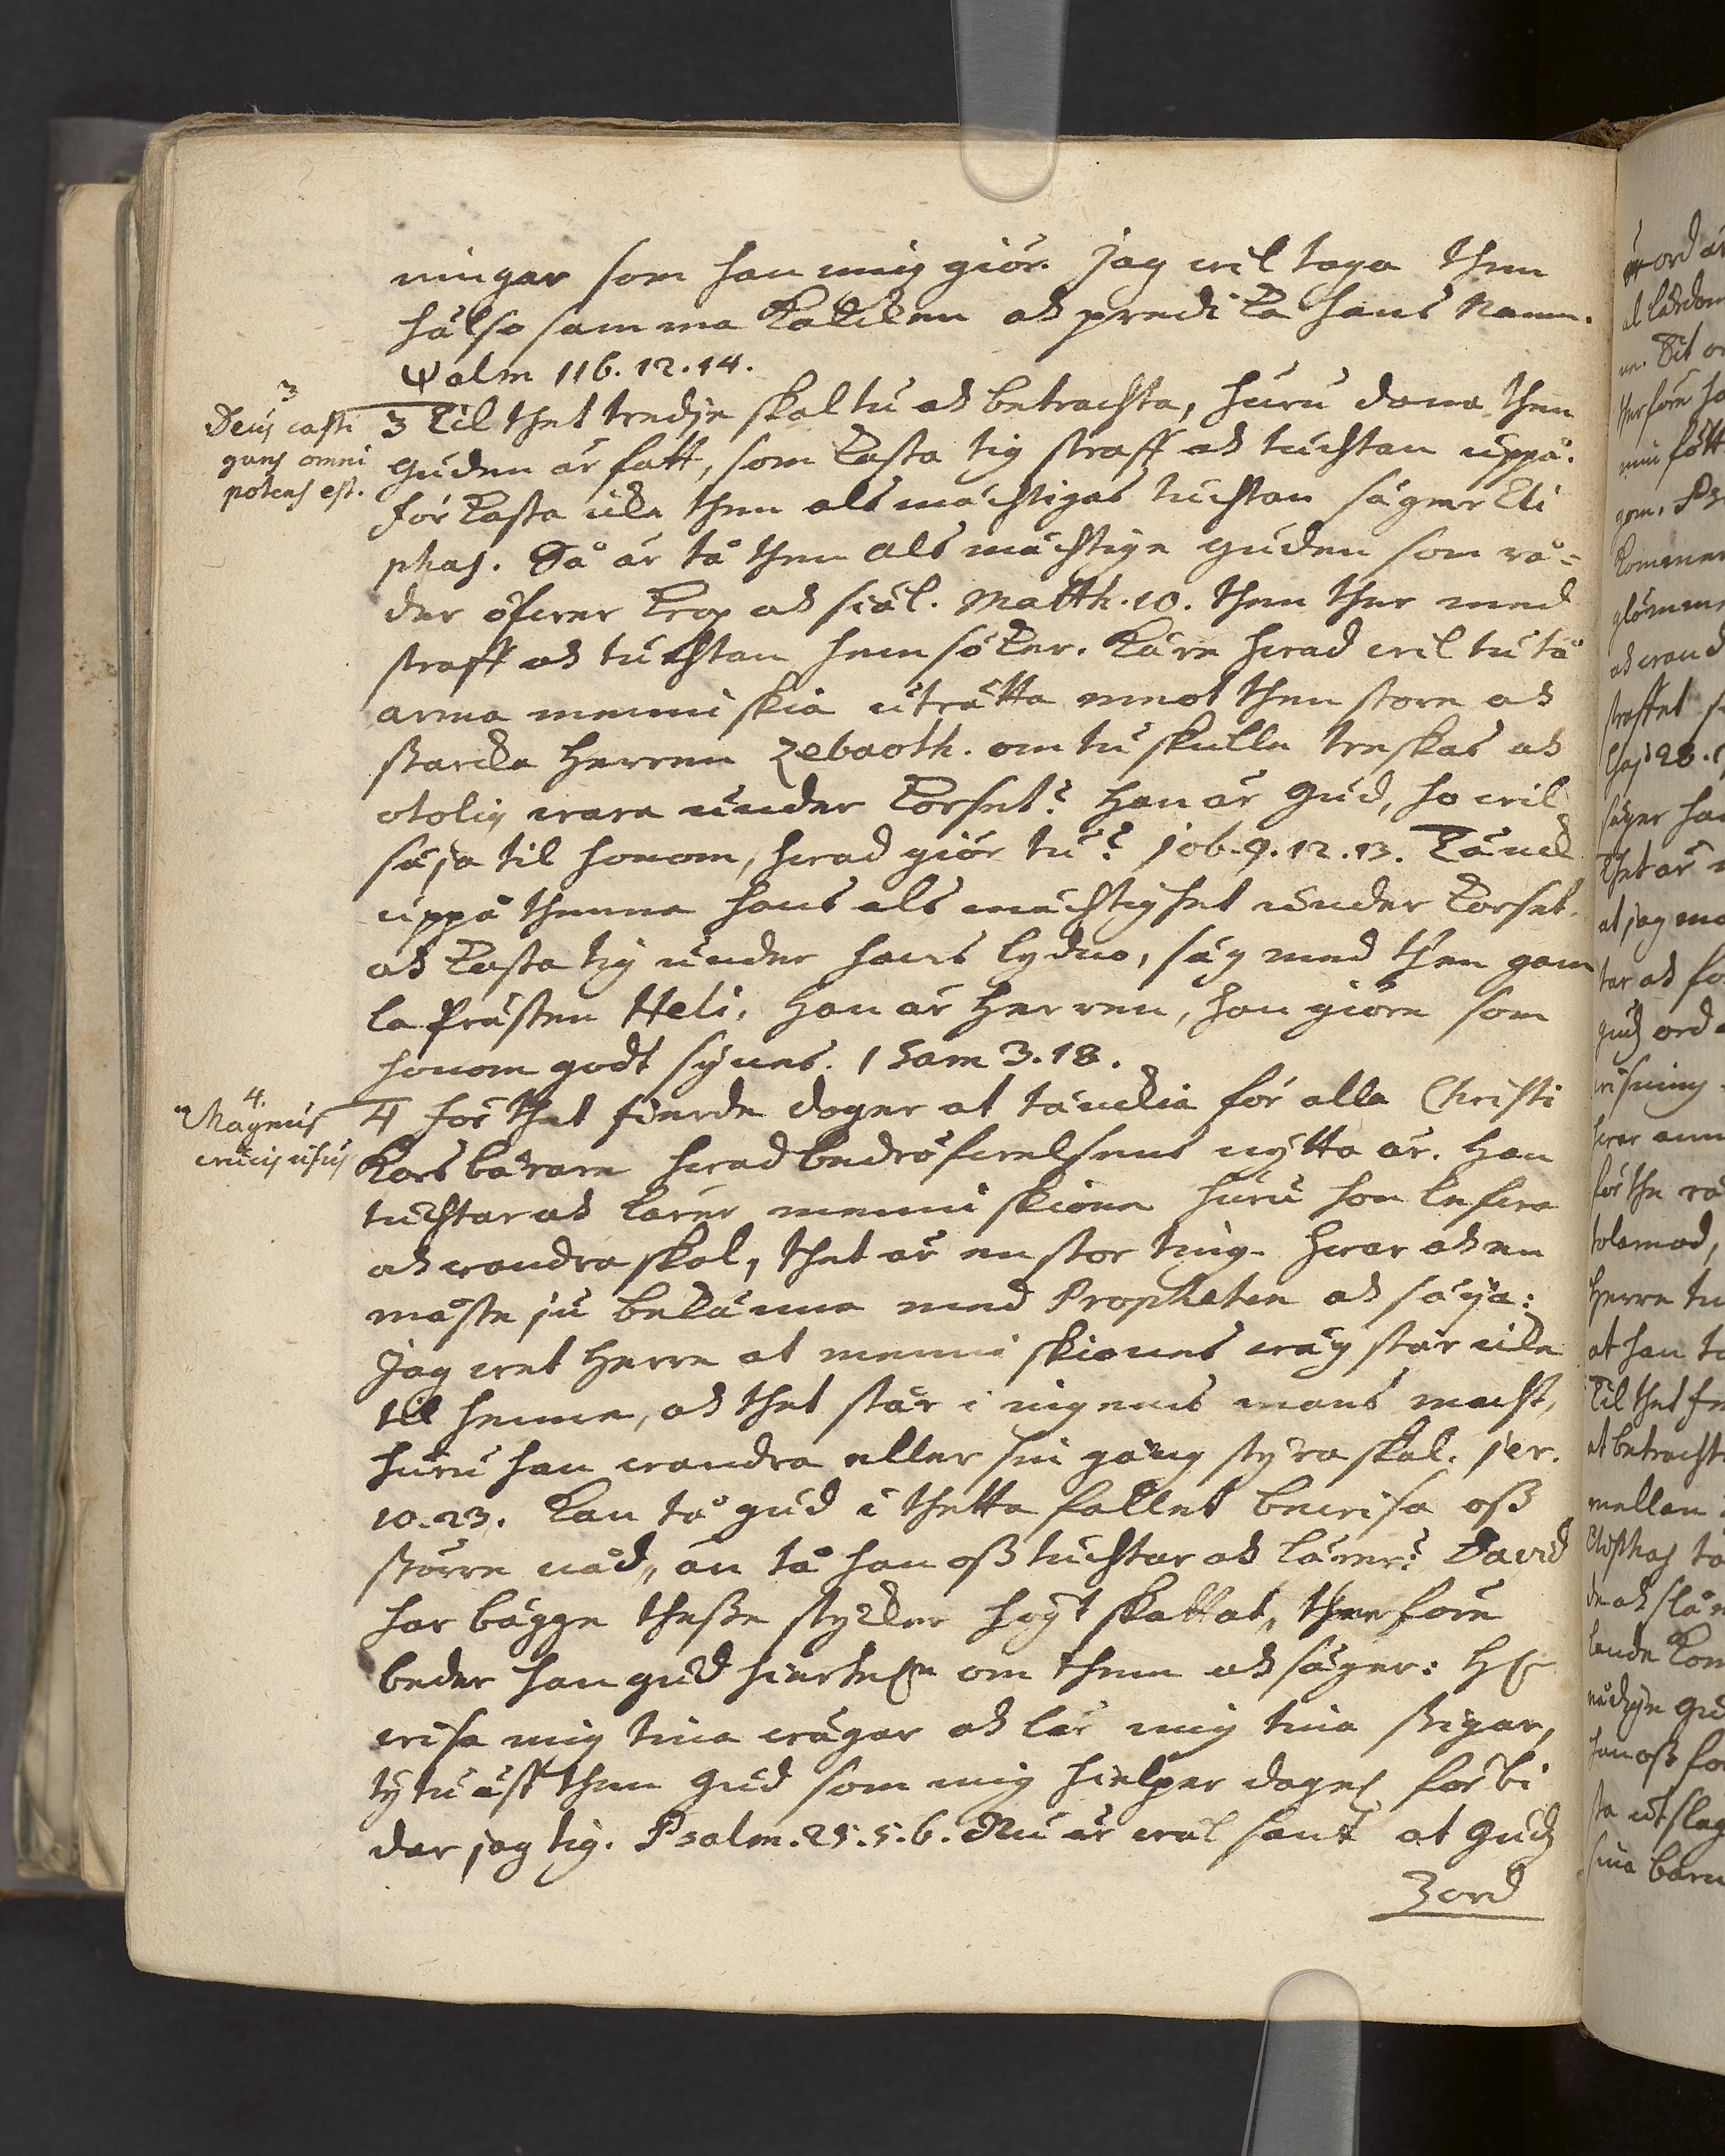 ningar som han mig giör. Jag wil taga then
hälsosamma Kalcken och predika hans Namn.
Psalm 116.12.14.
3
Deus casti
gans omni
potens est.
3 Til thet tredje skaltu ock betrachta, huru dana then
guden är satt, som kasta tig straff och tuchtan uppå.
förkasta icke then alsmächtigas tuchtan säger Eli
phas. Så är tå then Alsmächtige guden som rå=
der öfwer krop och siäl. Matth. 10. then ther med
straff och tuchtan hemsöker. Käre hwad wil tu tå
arma menniskia uträtta emot then store och
starcke Herren Zebaoth. om tu skulle treskas och
otolig wara under korset? Han är Gud, ho wil
säja til honom, hwad giör tu? Job. 9. 12. 13. Tänck
uppå thenna hans alsmächtighet under korset.
och kasta tig under hans lydno, säg med then gam
la Prästen Heli, Han är Herren, han giöre som
honom godt synes. 1 Sam 3. 18.
4.
Magnus
crucis usus
4 för thet fierde doger at tänckia för alla Christi
Korsbärare hwad bedröfwelsens nytta är. Han
tuchtar och lärer menniskiona huru hon lefwa
och wandra skal, thet är en stor ting. Hwar och en
måste ju bekänna med Propheten och säija:
Jag wet Herre at menniskiones wäg står icke
til henne, och thet står i ingens mans macht,
huru han wandra eller sin gång styra skal. Jer.
10. 23. Kan tå gud i thetta fallet bewisa oß
större nåd, än tå han oß tuchtar och lärer? David
har bägge theße stycker högt skattat, therföre
beder han gud om them och säger: H
wisa mig tina wägar och lär mig tina stigar,
ty tu äst then Gud som mig hielper förbi
der jag tig. Psalm. 25. 5. 6. Nu är wäl sant at Gudz
ord